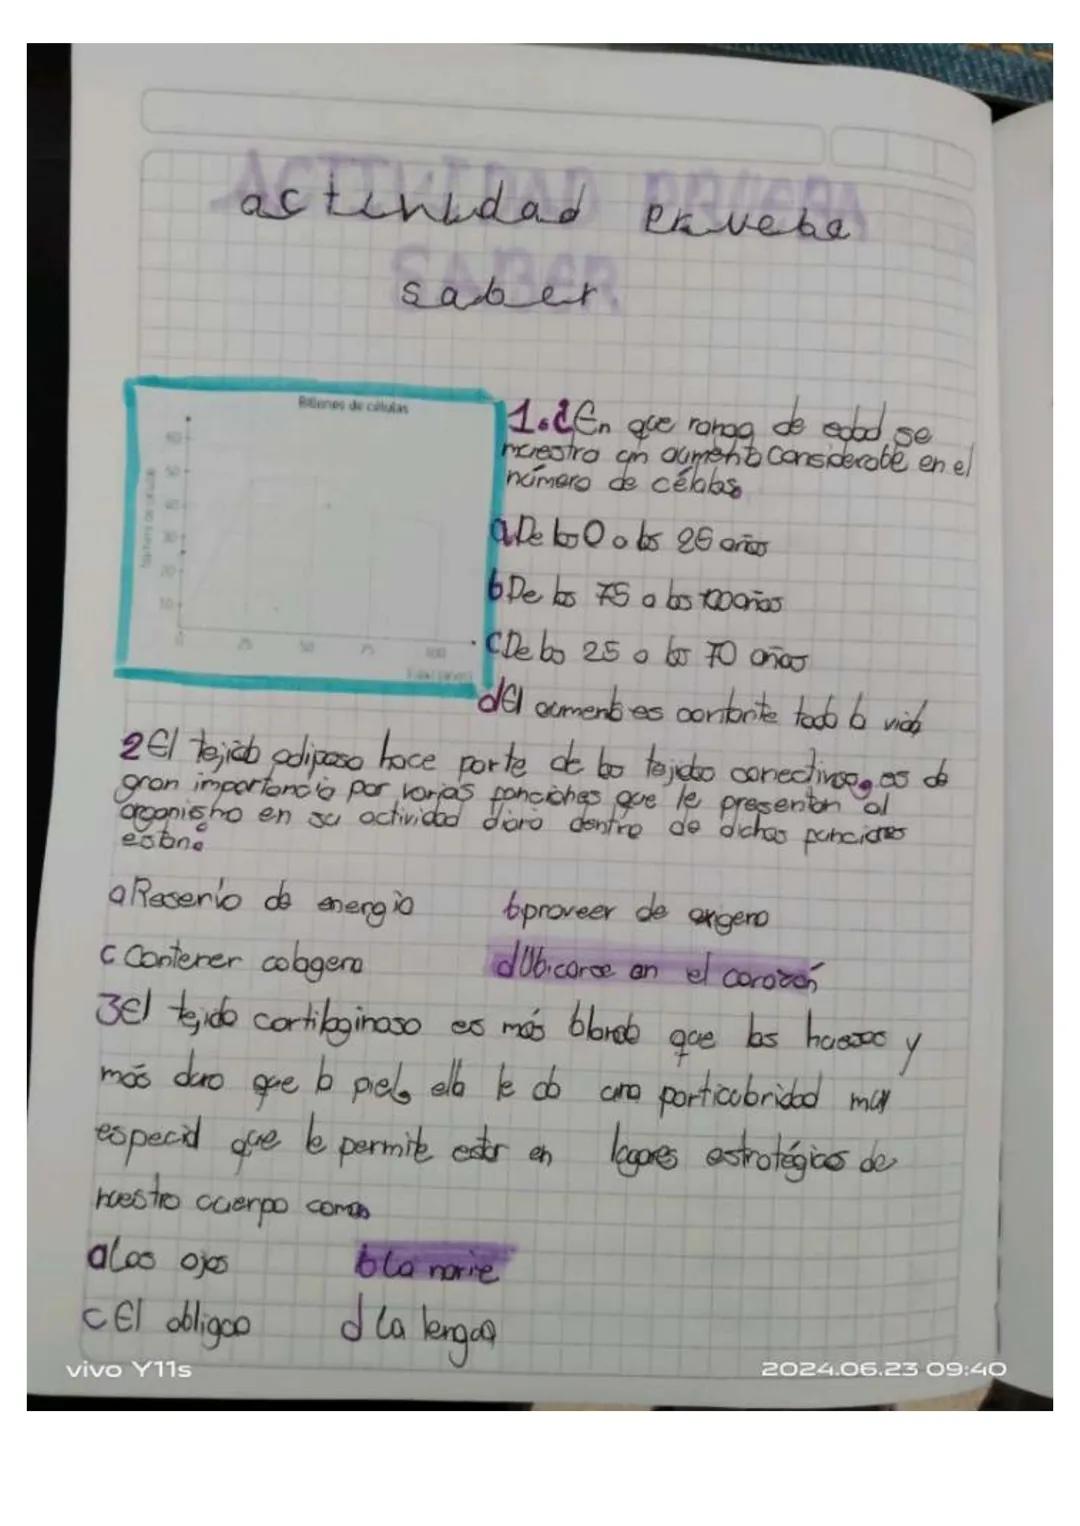 ACTIVIDAD PRUEBA
SABER
actividad Prueba
saber
Billones de células
60
50
40
30
20
10
0
25
50
75
100
1.¿En que rango de edad se
muestra un aumento considerable en el
número de células
a De los 0 a los 25 años
b De los 75 a los 100 años
c De los 25 a los 70 años
d El aumento es contante toda la vida
2 El tejido adiposo hace parte de los tejidos conectivos, es de
gran importancia por varias funciones que le presentan al
organismo en su actividad diaria dentro de dichas funciones
estan:
a Reserva de energia
b proveer de oxigeno
c Contener colageno
d Ubicarse en el corazón
3 El tejido cartilaginoso es más blando que los huesos y
más duro que la piel, ella le da una particularidad muy
especial que le permite estar en lugares estratégicos de
nuestro cuerpo como
a Los ojos
b La narie
c El obligao
d La lengua
vivo Y11s
2024.06.23 09:40